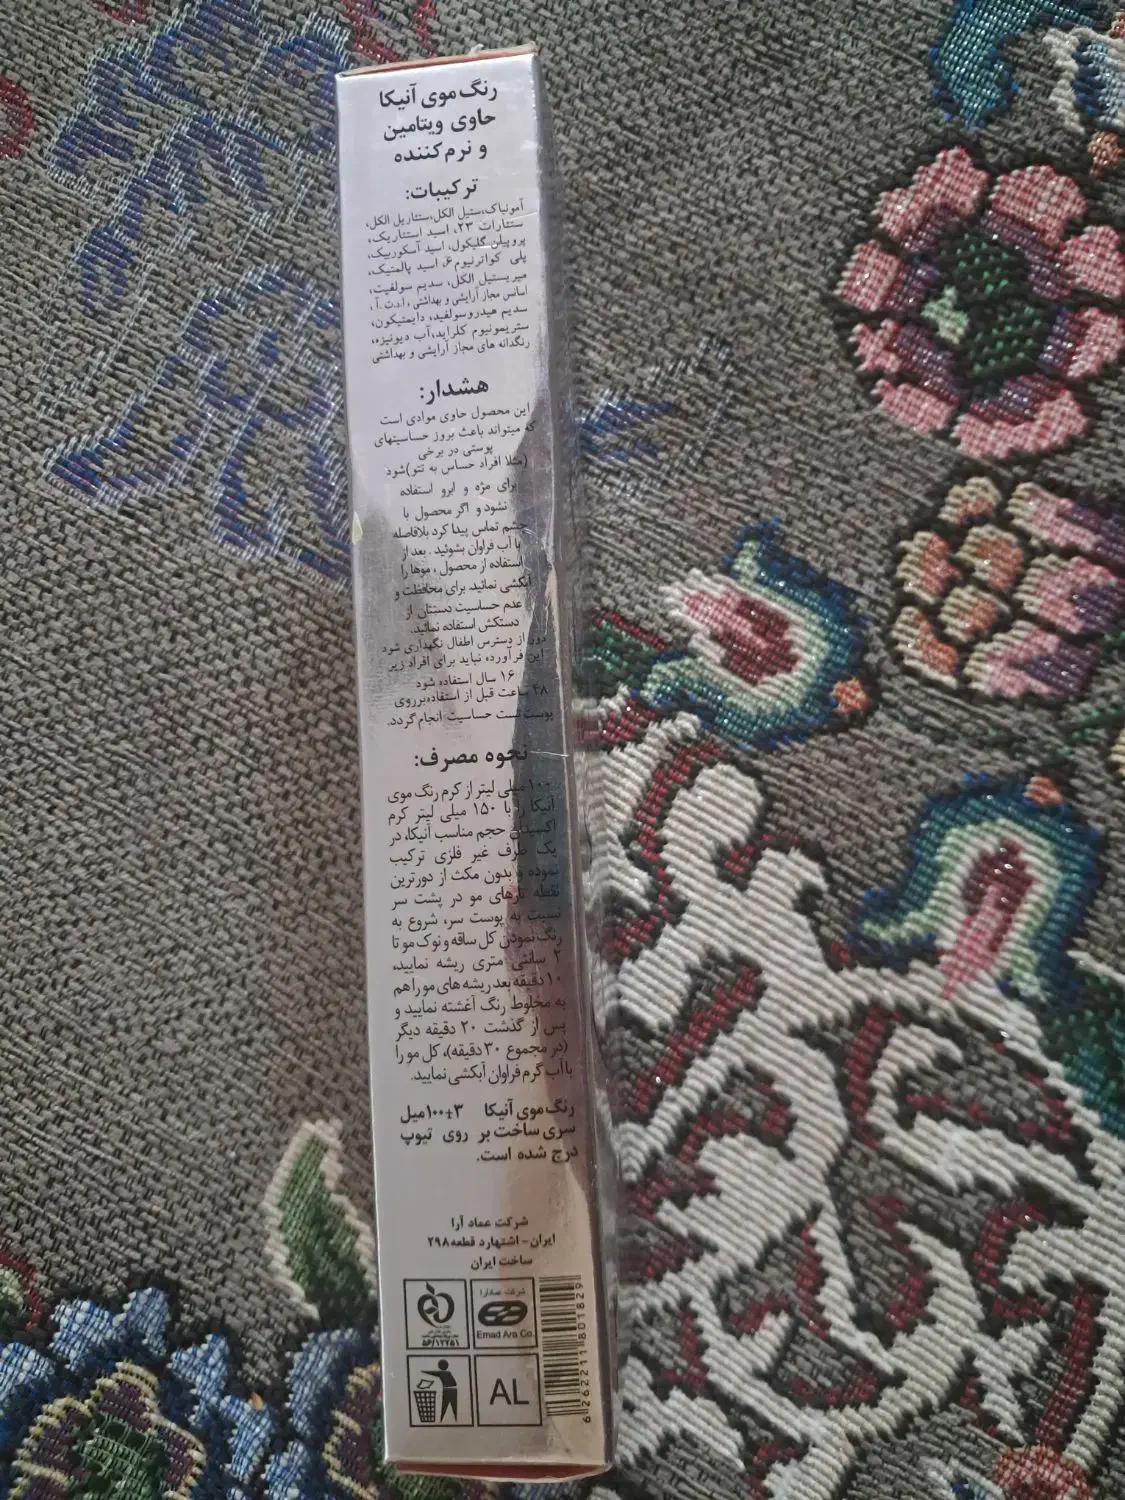 رنگ موی آنیکا
حاوی ویتامین
و نرم کننده
ترکیبات:
آمونیاک،ستیل الکل،ستئاریل الکل،
ستئارات ۲۳، اسید استئاریک،
پروپیلن گلیکول، اسید آسکوربیک،
پلی کواترنیوم ۶، اسید پالمتیک،
میریستیل الکل، سدیم سولفیت،
اسانس مجاز آرایشی و بهداشتی، ا.د.ت.آ،
سدیم هیدروسولفید، دایمتیکون،
ستریمونیوم کلراید،آب دیونیزه،
رنگدانه های مجاز آرایشی و بهداشتی
هشدار:
این محصول حاوی موادی است
که میتواند باعث بروز حساسیتهای
پوستی در برخی
(مثلا افراد حساس به تتو)شود
برای مژه و ابرو استفاده
نشود و اگر محصول با
چشم تماس پیدا کرد بلافاصله
با آب فراوان بشوئید . بعد از
استفاده از محصول ، موها را
آبکشی نمائید برای محافظت و
عدم حساسیت دستتان از
دستکش استفاده نمائید.
دور از دسترس اطفال نگهداری شود
این فرآورده نباید برای افراد زیر
۱۶ سال استفاده شود
۴۸ ساعت قبل از استفاده برروی
پوست تست حساسیت انجام گردد.
نحوه مصرف:
۱۰۰ میلی لیتر از کرم رنگ موی
آنیکا را با ۱۵۰ میلی لیتر کرم
اکسیدان حجم مناسب آنیکا، در
یک ظرف غیر فلزی ترکیب
نموده و بدون مکث از دورترین
نقطه تارهای مو در پشت سر
نسبت به پوست سر، شروع به
رنگ نمودن کل ساقه و نوک مو تا
۲ سانتی متری ریشه نمایید،
۱۰ دقیقه بعد ریشه های مو را هم
به مخلوط رنگ آغشته نمایید و
پس از گذشت ۲۰ دقیقه دیگر
(در مجموع ۳۰ دقیقه)، کل مو را
با آب گرم فراوان آبکشی نمایید.
رنگ موی آنیکا ۳±۱۰۰میل
سری ساخت بر روی تیوپ
درج شده است.
شرکت عماد آرا
ایران - اشتهارد قطعه ۲۹۸
ساخت ایران
شرکت عمادآرا
Emad Ara Co.
۵۶/۱۲۲۵۱
AL
6 262211 801829